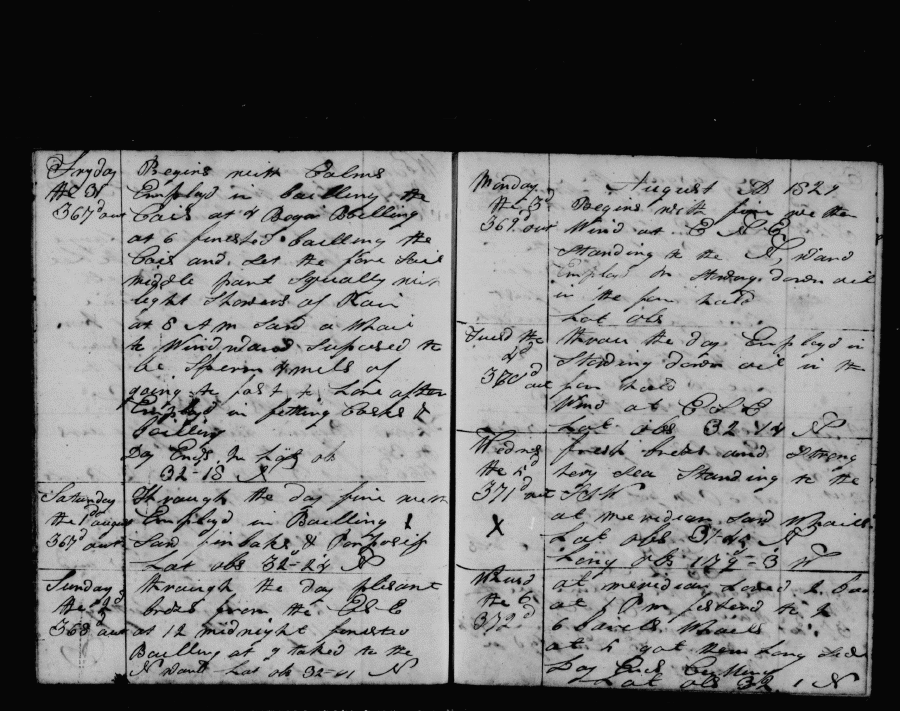 Fryday
the 31
367 d out
Begins with Calms
Employd in boilling the
Cace at 4 Began Boilling
at 6 finested boilling the
Cace and Set the fore Sail
middle part Squally with
light Showers of Rain
at 8 A m Sand a Whail
to Windward Suposed to
be Sperm 4 mils of
going to fast to
Employd in fitting Casks &
Boilling
Day Ends in
32-18 N
Saturday
the 1 d august
367 d out
Through the day fine with
Employd in Boilling
Sand finbaks & Porposes
Lat obs 32-24 N
Sunday
the 2 d
368 d out
through the day plesant
brezes from the ESE
at 12 midnight finested
Boilling at 9 taked to the
N ward Lat ob 32-41 N
August 1829
Monday
the 3 d
369 d out
Begins with fine wether
Wind at E N E
Standing to the N ward
Employd in Stowing down oil
in the fore hold
Lat obs
Tuesd the
out
throu the day Employd in
Stowing down oil in the
fore hold
Wind at E S E
Lat obs 32-14 N
Wednes
the 5 d
371 d out
X
fresh brezes and Strong
hevy Sea Standing to the
SSW
at meridian Sand Whails
Lat obs 31-45 N
Long obs 179-3 W
Thursd
the 6
372 d
at meridian Lored 2 Boats
at 1 P m
6 Whails
at 5 got them Long Side
Day Ends
Lat obs 32 1 N